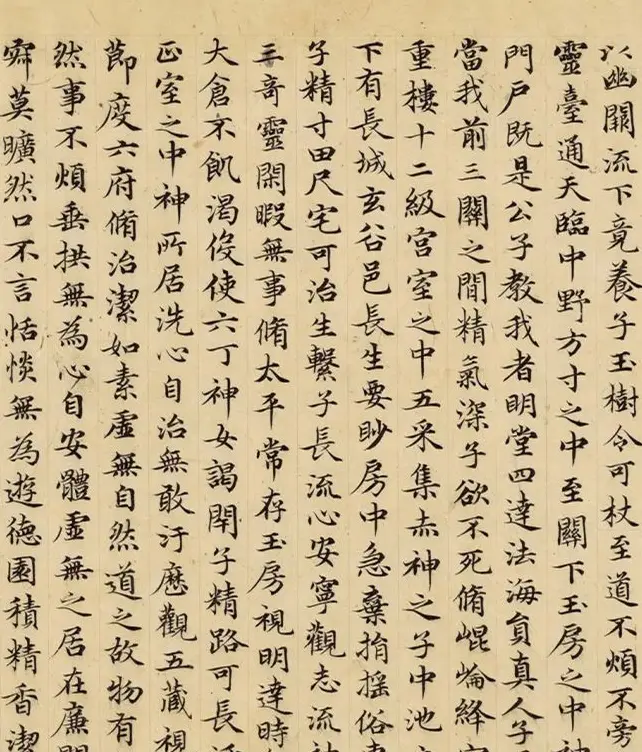 以幽關流下竟養子玉樹令可杖至道不煩不旁
靈臺通天臨中野方寸之中至關下玉房之中神
門戶既是公子教我者明堂四達法海員真人子
當我前三關之間精氣深子欲不死脩崐崘絳
重樓十二級宮室之中五采集赤神之子中池
下有長城玄谷邑長生要眇房中急棄捐搖俗
子精寸田尺宅可治生繫子長流心安寧觀志流神
三奇靈閑暇無事脩太平常存玉房視明達時
大倉不飢渴伇使六丁神女謁閇子精路可長活
正室之中神所居洗心自治無敢汙歷觀五藏視
莭度六府脩治潔如素虛無自然道之故物有
然事不煩垂拱無為心自安體虛無之居在廉間
𡨋莫曠然口不言恬惔無為遊德園積精香潔